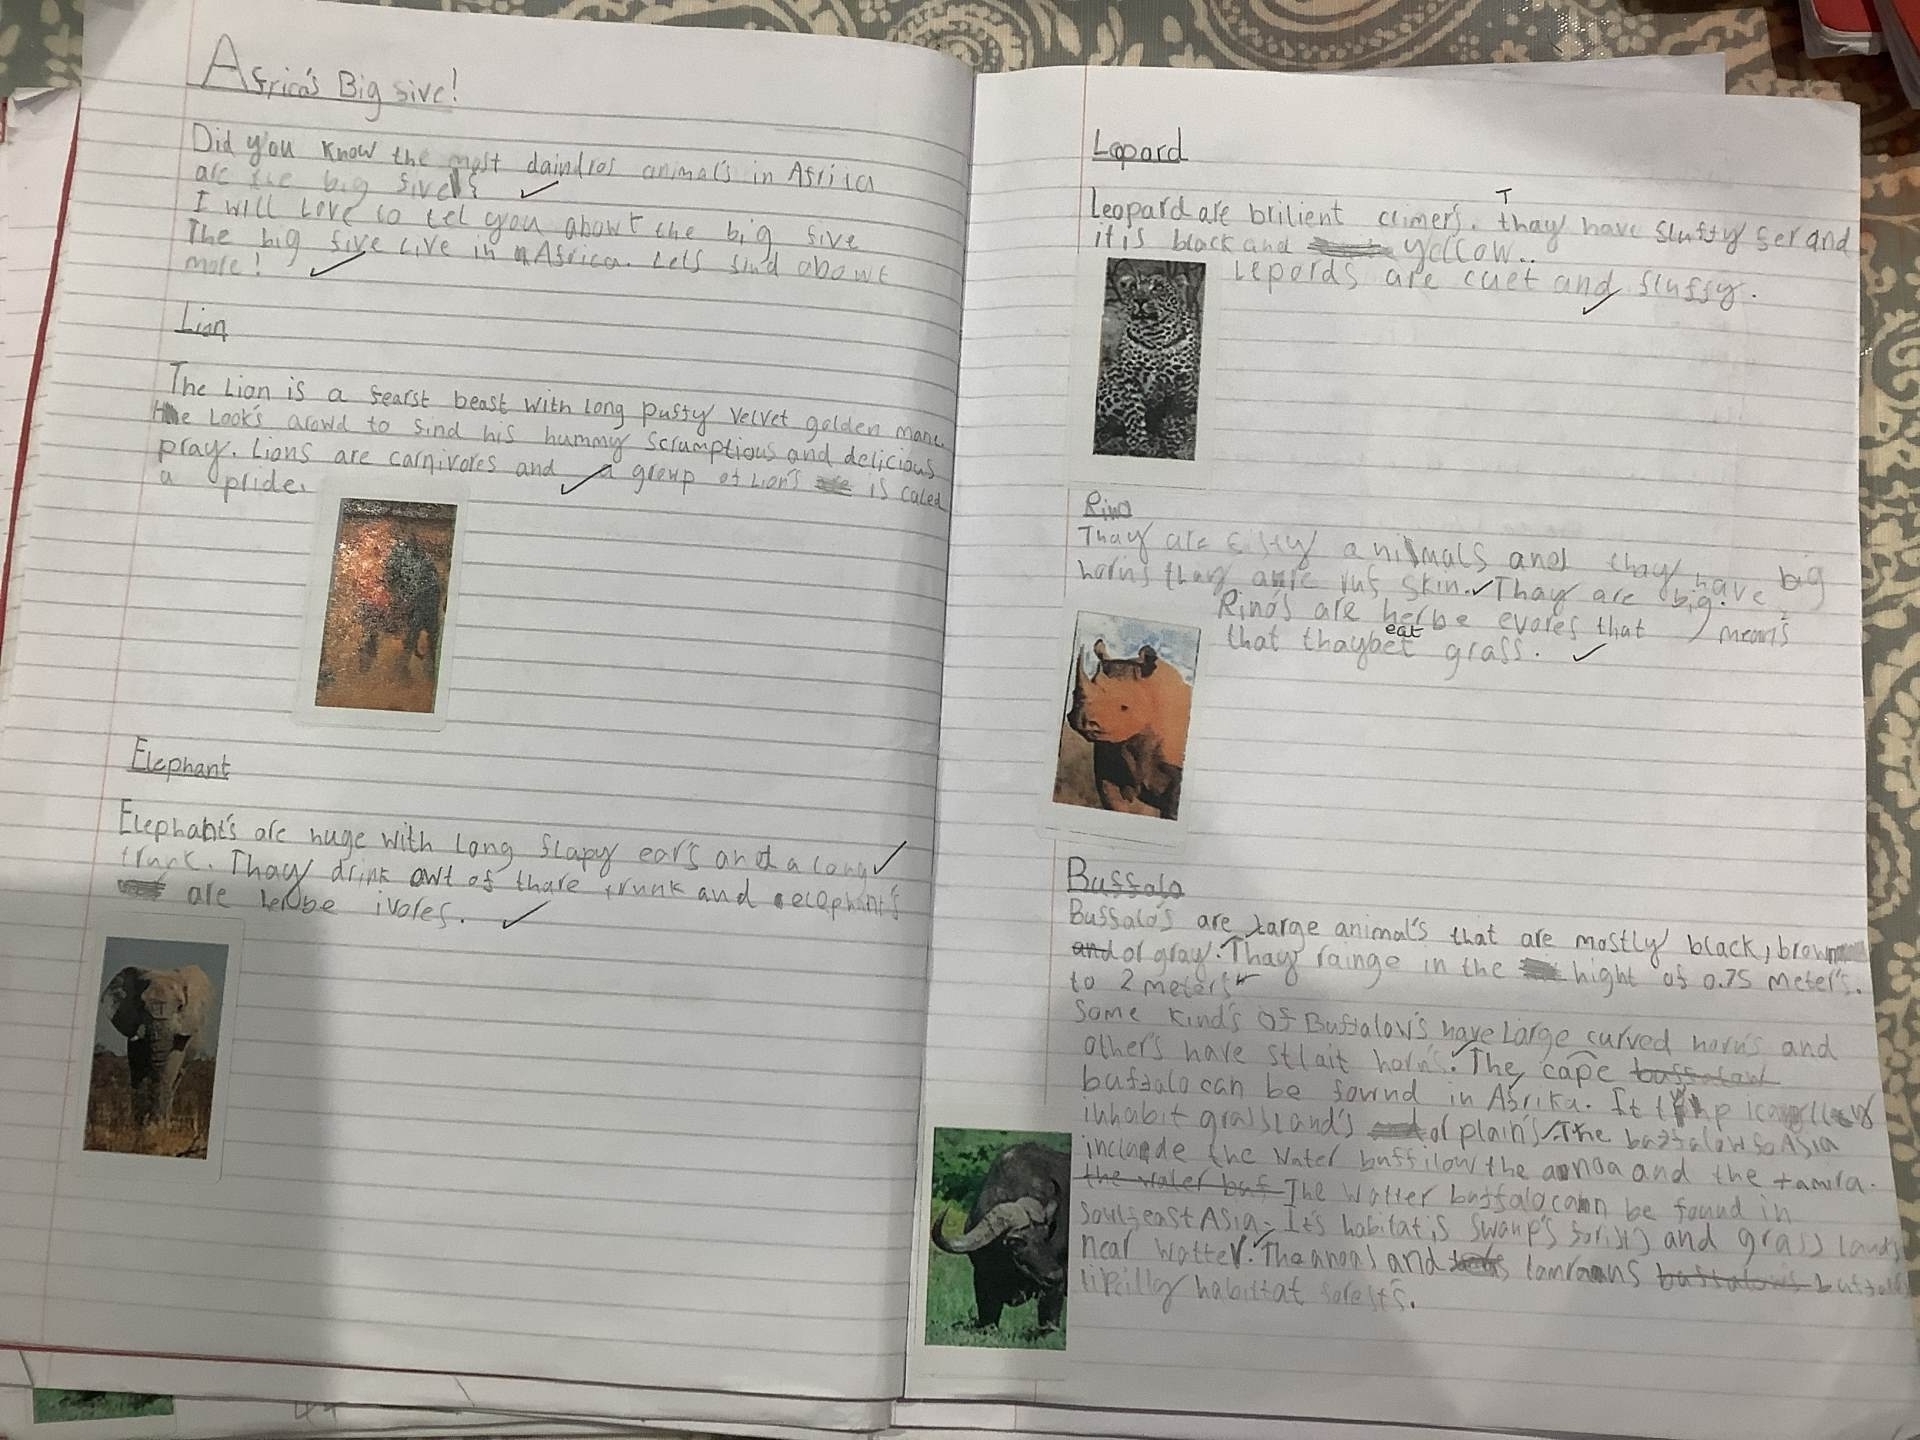 Africa's Big five!
Did you know the most daindros animal's in Africa
are the big five?
I will love to tel you abowt the big five
The big five live in Africa. Lets find abowt
more!
Lion
The Lion is a fearst beast with long puffy velvet golden mane.
He Look's arowd to find his hummy scrumptious and delicious
pray. Lions are carnivores and a growp of Lion's is caled
a pride.
Elephant
Elephant's are huge with long flapy ear's and a long
trunk. Thay drink owt of thare trunk and elephant's
are herbe ivores.
Lopard
T
Leopard are brilient climer's. thay have fluffy fer and
it is black and yellow..
Lepords are cuet and fluffy.
Rino
Thay are animals and thay have big
horns thay are ruf skin. Thay are big.
Rino's are herbe evores that mean's
eat
that thay grass.
Buffalo
Buffalo's are large animal's that are mostly black, brown
and or gray. Thay rainge in the hight of 0.75 meter's.
to 2 meters
Some kind's of Buffalow's have large curved horns and
other's have strait horn's. The cape buffalow
buffalo can be fownd in Afrika. It
inhabit grassland's or plain's. The buffalow fo Asia
include the water buffilow the anoa and the
the water buf The watter buffalo can be found in
Asia. It's habitat is swamp's and grass lands
near watter. The anoa's and buffalow's
habittat forest's.